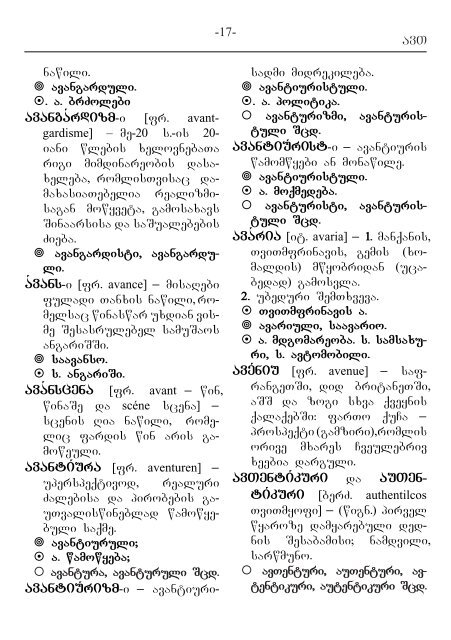 -17-
ავთ
ნაწილი.
⊚ ავანგარდული.
⊙. ა. ბრძოლები
ავანგარდიზმ-ი [ფრ. avant-
gardisme] – მე-20 ს.-ის 20-
იანი წლების ხელოვნებათა
რიგი მიმდინარეობის დასა-
ხელება, რომლისთვისაც და-
მახასიათებელია რეალიზმი-
საგან მოწყვეტა, გამოსახავს
შინაარსისა და საშუალებების
ძიება.
⊚ ავანგარდისტი, ავანგარდუ-
ლი.
ავანს-ი [ფრ. avance] – მისაღები
ფულადი თანხის ნაწილი, რო-
მელსაც წინასწარ უხდიან ვის-
მე შესასრულებელ სამუშაოს
ანგარიშში.
⊚ საავანსო.
⊙ ს. ანგარიში.
ავანსცენა [ფრ. avant – წინ,
წინაშე და scéne სცენა] –
სცენის ღია ნაწილი, რომე-
ლიც ფარდის წინ არის გა-
მოწეული.
ავანტიურა [ფრ. aventuren] –
უპერსპექტივოდ, რეალური
ძალებისა და პირობების გა-
უთვალისწინებლად წამოწყე-
ბული საქმე.
⊚ ავანტიურული;
⊙ ა. წამოწყება;
○ ავანტურა, ავანტურული შცდ.
ავანტიურიზმ-ი – ავანტიური-
სადმი მიდრეკილება.
⊚ ავანტიურისტული.
⊙. ა. პოლიტიკა.
○ ავანტურიზმი, ავანტურის-
ტული შცდ.
ავანტიურისტ-ი – ავანტიურის
წამომწყები ან მონაწილე.
⊚ ავანტიურისტული.
⊙ ა. მოქმედება.
○ ავანტურისტი, ავანტურის-
ტული შცდ.
ავარია [იტ. avaria] – 1. მანქანის,
თვითმფრინავის, გემის (ხო-
მალდის) მწყობრიდან (უცა-
ბედად) გამოსვლა.
2. უბედური შემთხვევა.
⊙ თვითმფრინავის ა.
⊚ ავარიული, საავარიო.
⊙ ა. მდგომარეობა. ს. სამსახუ-
რი, ს. ავტომობილი.
ავენიუ [ფრ. avenue] – საფ-
რანგეთში, დიდ ბრიტანეთში,
აშშ და ზოგი სხვა ქვეყნის
ქალაქებში: ფართო ქუჩა –
პროსპექტი (გამზირი), რომლის
ორივე მხარეს ჩვეულებრივ
ხეებია დარგული.
ავთენტიკური და აუთენ-
ტიკური [ბერძ. authentilcos
თვითმყოფი] – (წიგნ.) პირველ
წყაროზე დამყარებული დედ-
ნის შესაბამისი; ნამდვილი,
სარწმუნო.
○ ავთენტური, აუთენტური, ავ-
ტენტიკური, აუტენტიკური შცდ.